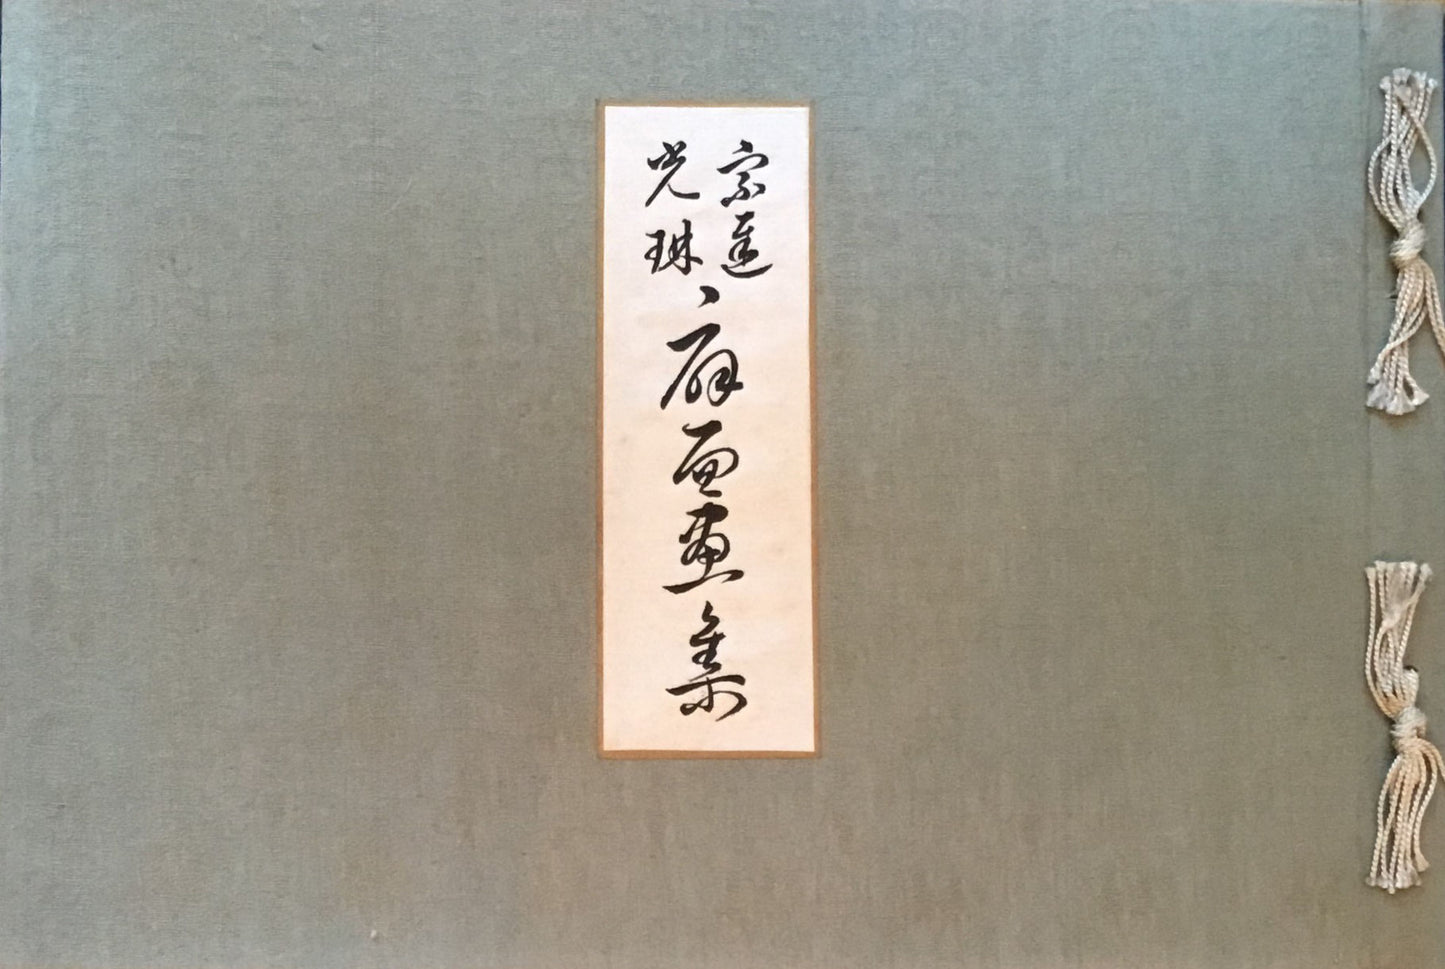 宗達
光琳
扇面画集